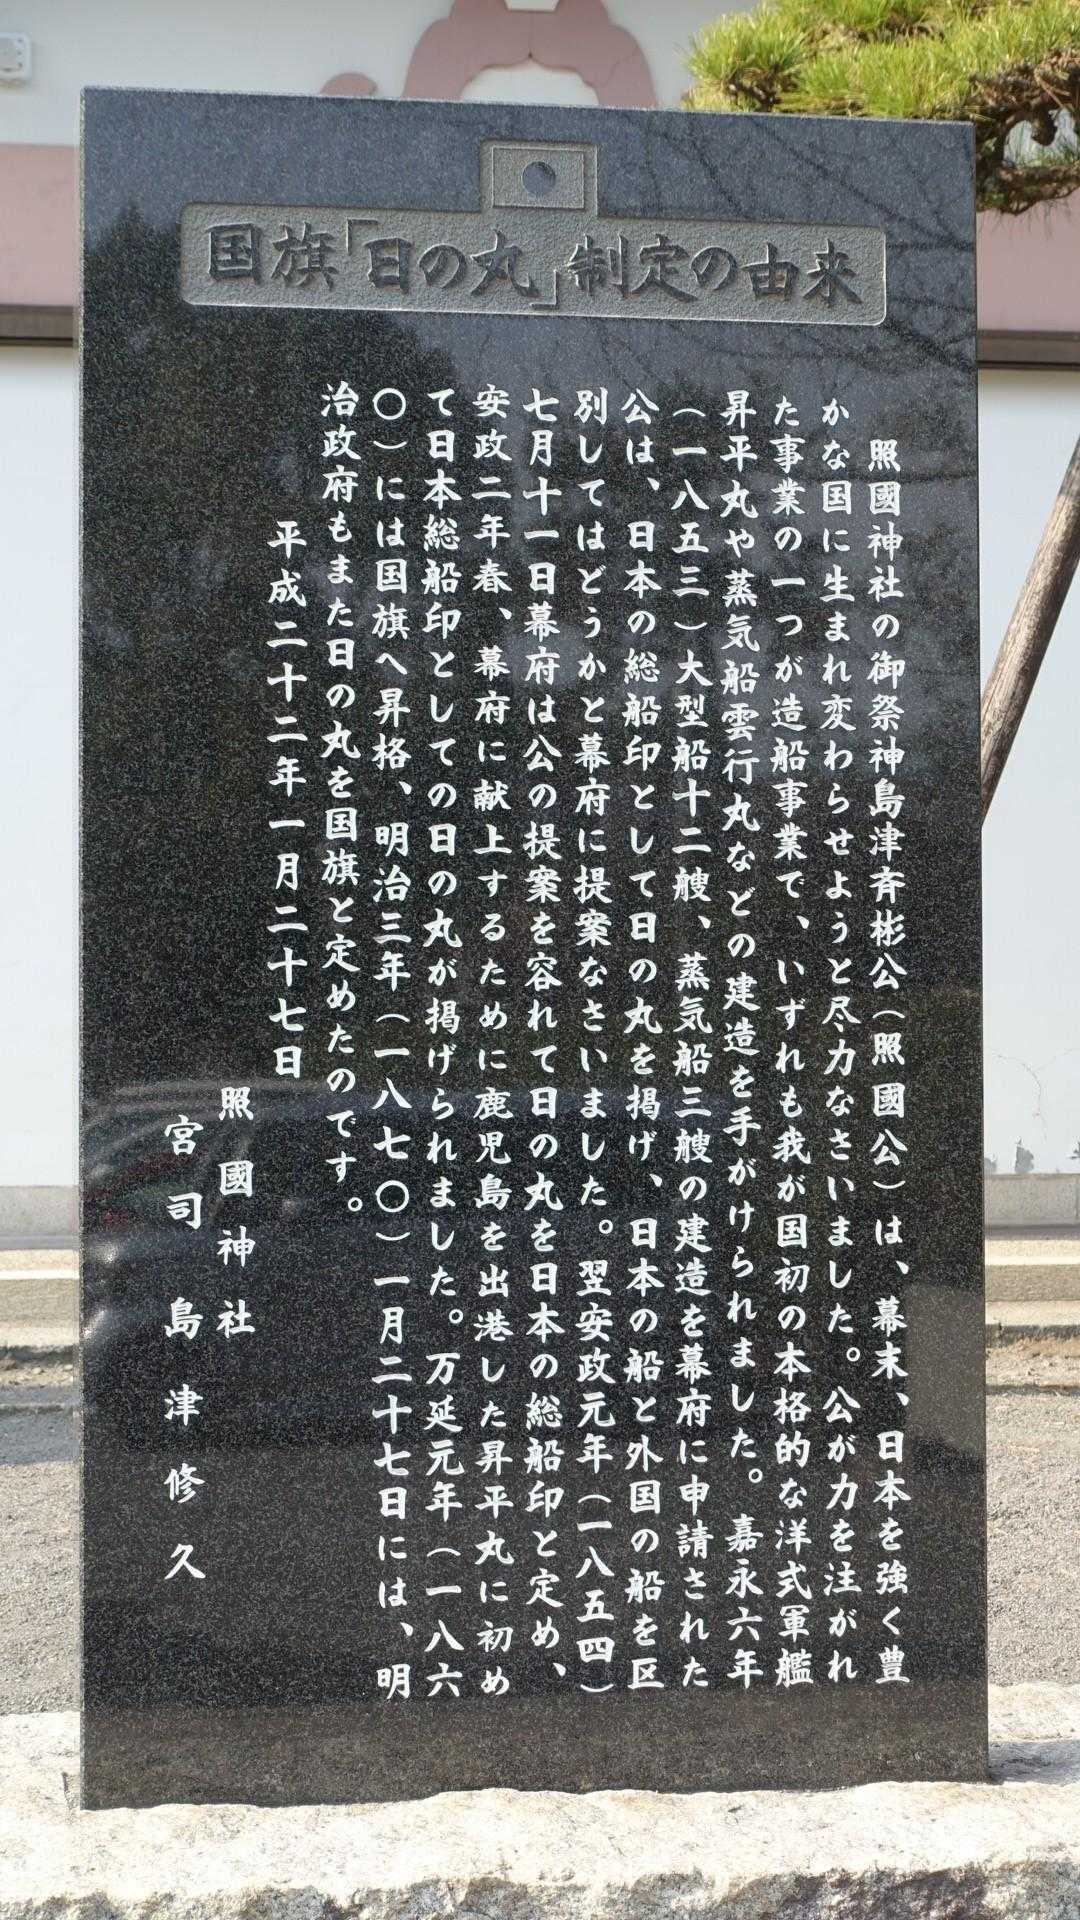 国旗「日の丸」制定の由来
照國神社の御祭神島津斉彬公（照國公）は、幕末、日本を強く豊
かな国に生まれ変わらせようと尽力なさいました。公が力を注がれ
た事業の一つが造船事業で、いずれも我が国初の本格的な洋式軍艦
昇平丸や蒸気船雲行丸などの建造を手がけられました。嘉永六年
（一八五三）大型船十二艘、蒸気船三艘の建造を幕府に申請された
公は、日本の総船印として日の丸を掲げ、日本の船と外国の船を区
別してはどうかと幕府に提案なさいました。翌安政元年（一八五四）
七月十一日幕府は公の提案を容れて日の丸を日本の総船印と定め、
安政二年春、幕府に献上するために鹿児島を出港した昇平丸に初め
て日本総船印としての日の丸が掲げられました。万延元年（一八六
〇）には国旗へ昇格、明治三年（一八七〇）一月二十七日には、明
治政府もまた日の丸を国旗と定めたのです。
平成二十二年一月二十七日
照國神社
宮司島津修久